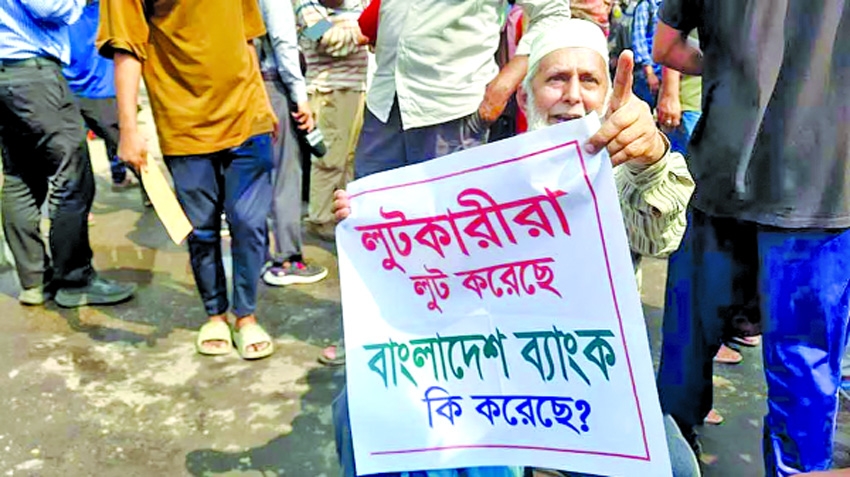 লুটকারীরা
লুট করেছে
বাংলাদেশ ব্যাংক
কি করেছে?